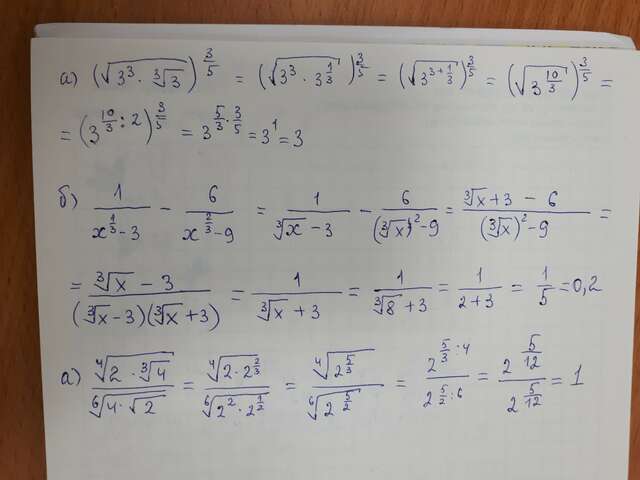 а) (√(3³ · ∛3))^(3/5) = (√(3³ · 3^(1/3)))^(3/5) = (√(3^(3+1/3)))^(3/5) = (√(3^(10/3)))^(3/5) =
= (3^(10/3 : 2))^(3/5) = 3^(5/3 · 3/5) = 3¹ = 3
б) 1/(x^(1/3) - 3) - 6/(x^(2/3) - 9) = 1/(∛x - 3) - 6/((∛x)² - 9) = (∛x + 3 - 6)/((∛x)² - 9) =
= (∛x - 3)/((∛x - 3)(∛x + 3)) = 1/(∛x + 3) = 1/(∛8 + 3) = 1/(2+3) = 1/5 = 0,2
а) ∜(2 · ∛4)/⁶√(4 · √2) = ∜(2 · 2^(2/3))/⁶√(2² · 2^(1/2)) = ∜(2^(5/3))/⁶√(2^(5/2)) = 2^(5/3 : 4)/2^(5/2 : 6) = 2^(5/12)/2^(5/12) = 1